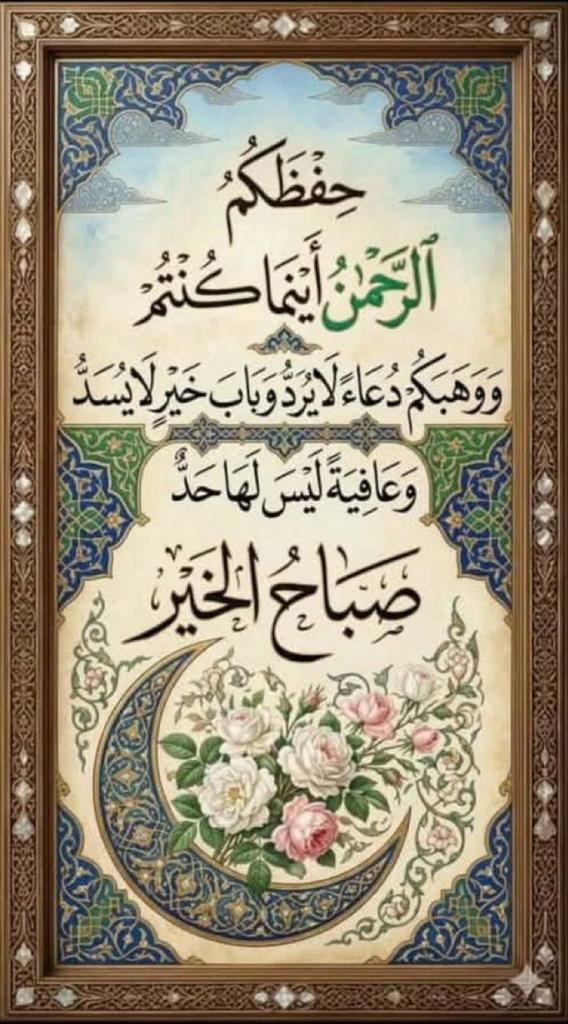 حِفْظَكُمُ
ٱلرَّحْمٰنُ أَيْنَمَا كُنْتُمْ
وَوَهَبَكُمْ دُعَاءً لَا يُرَدُّ وَبَابَ خَيْرٍ لَا يُسَدُّ
وَعَافِيَةً لَيْسَ لَهَا حَدٌّ
صَبَاحُ الخَيْر